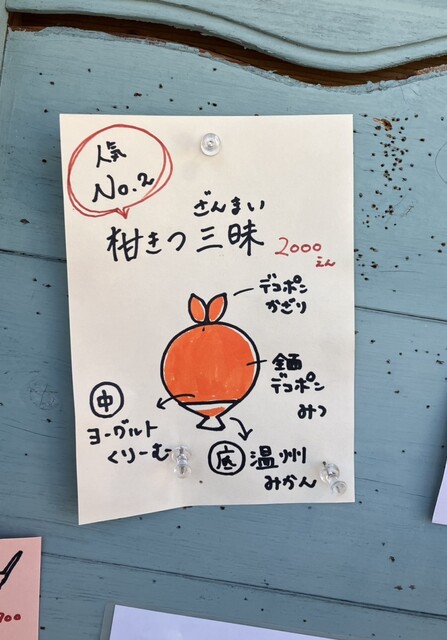 人気
No.2
ざんまい
柑きつ三昧 2000えん
デコポン
かざり
全面
デコポン
みつ
中
ヨーグルト
くりーむ
底 温州
みかん
700